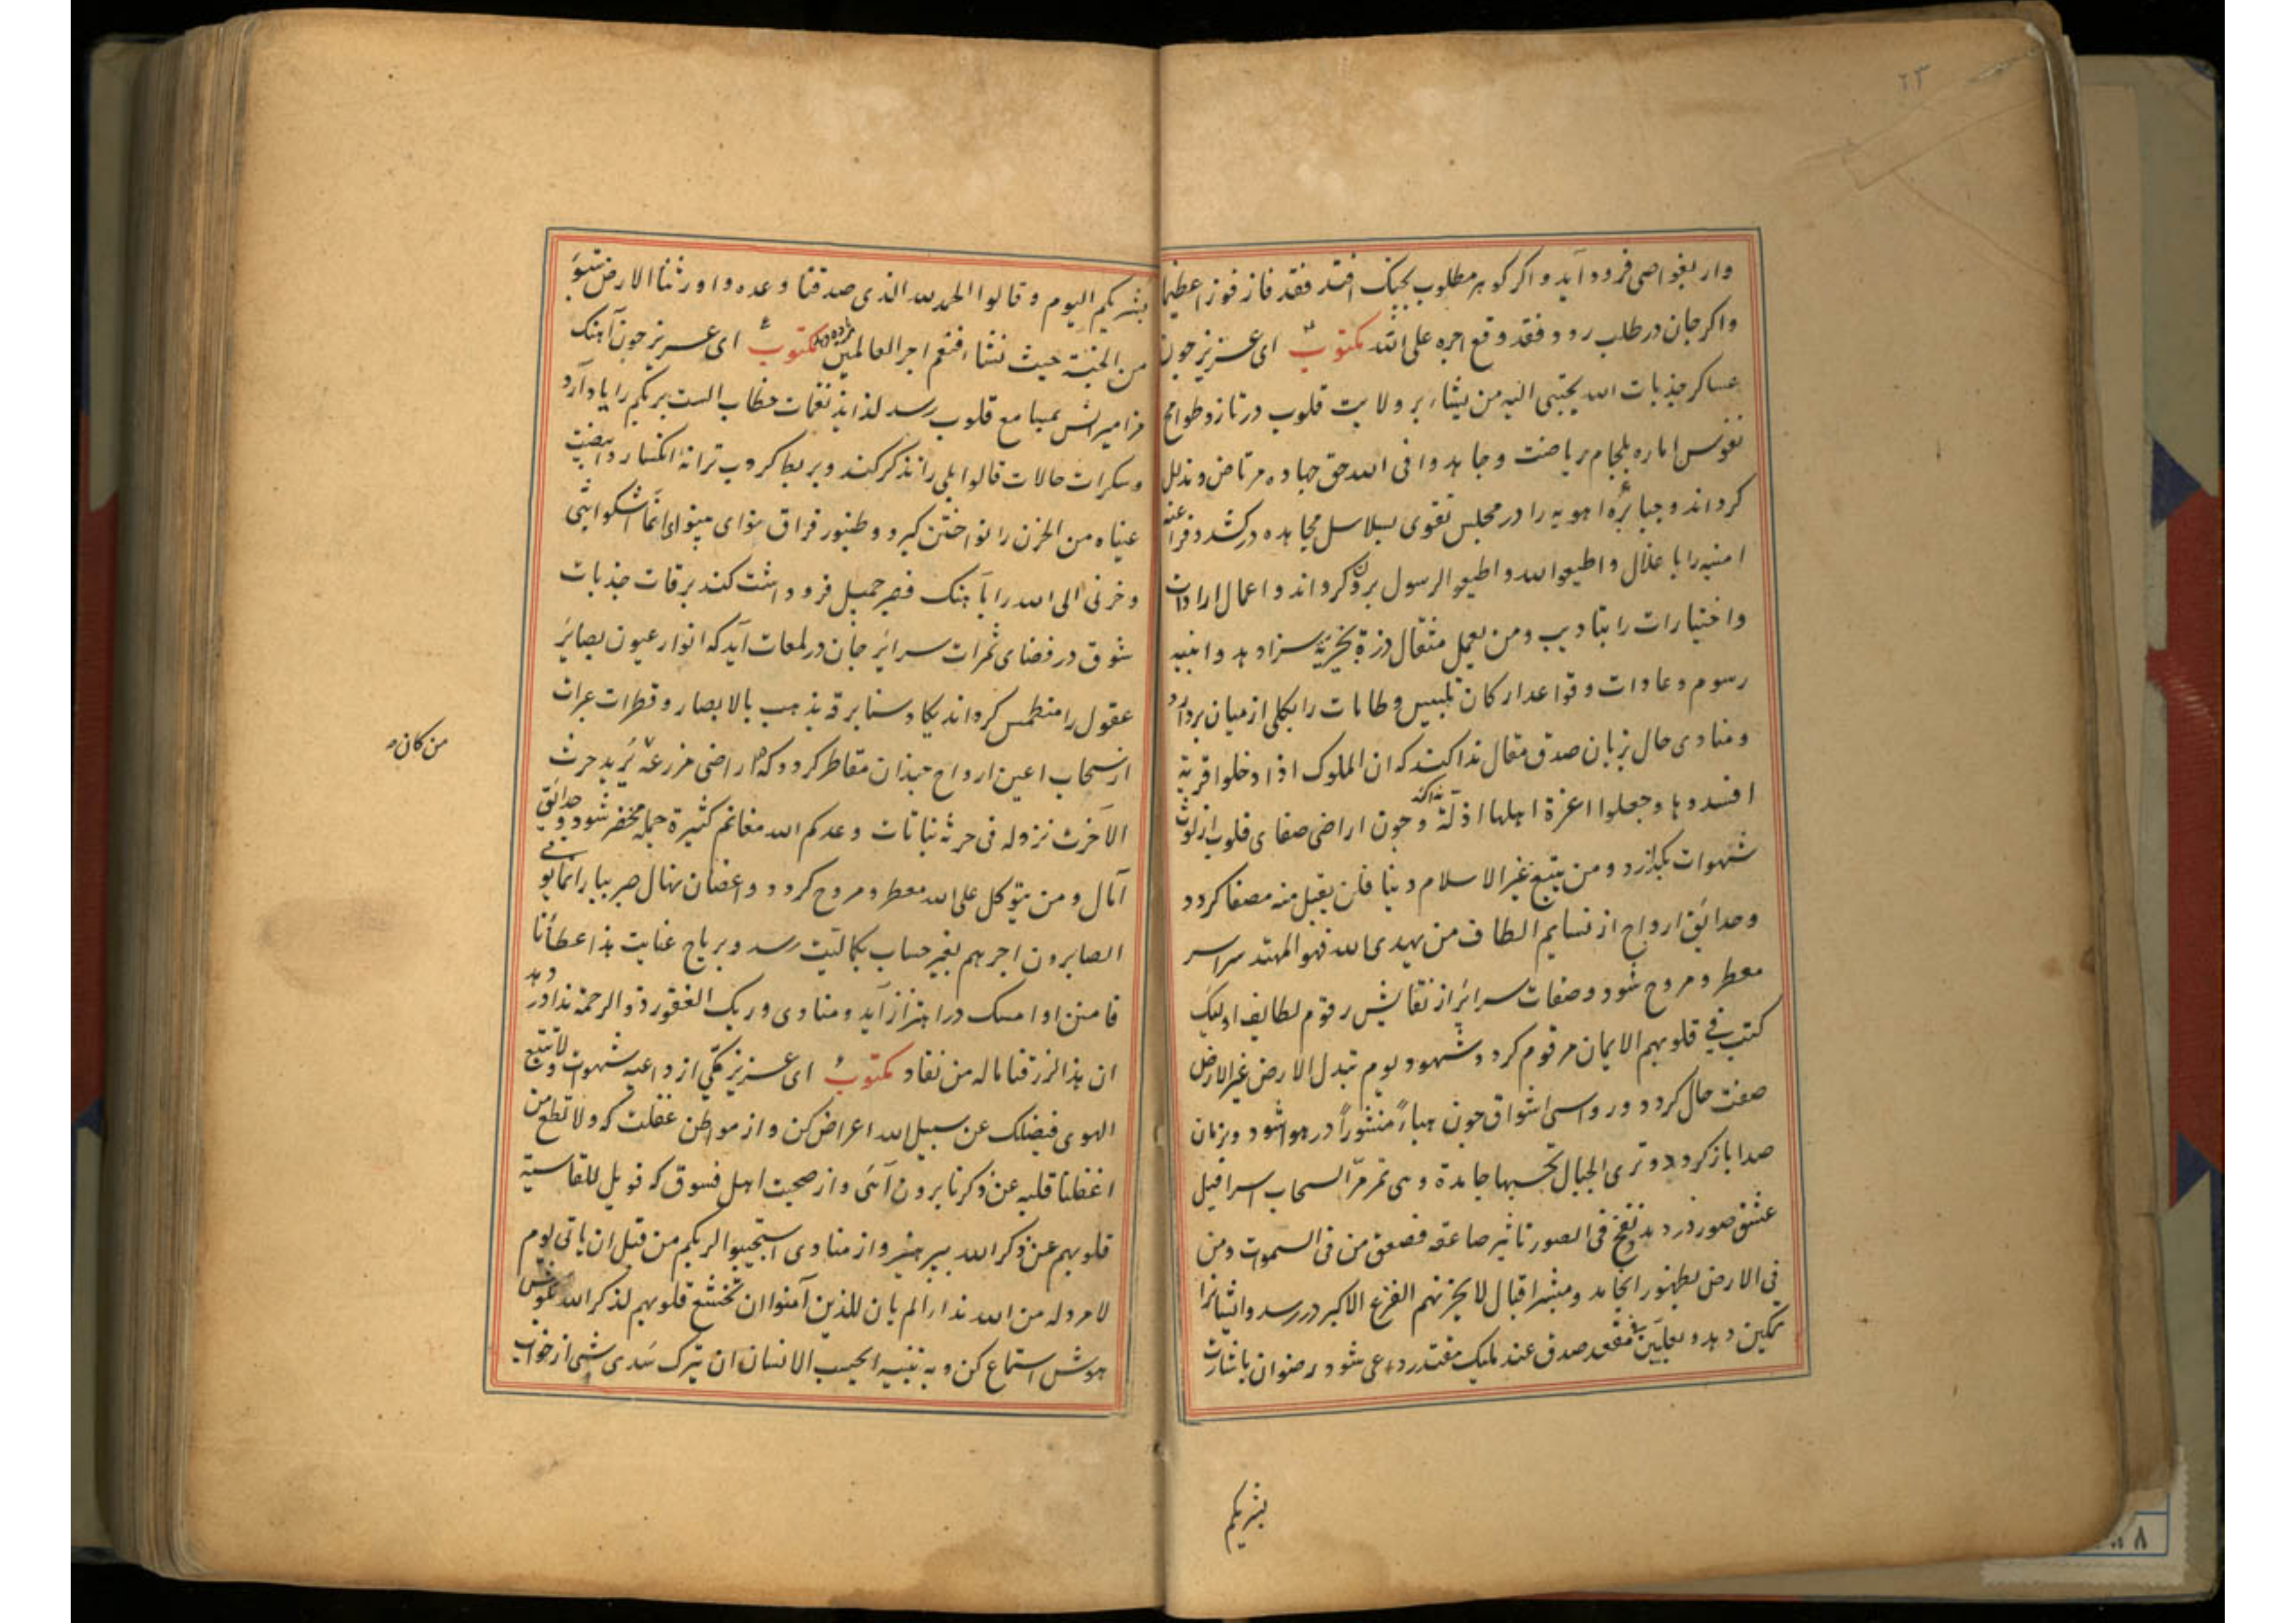 ۲۳
وار بغواصی فرود آید و اگر گوهر مطلوب بچنک افتد فقد فاز فوزا عظیما
واکر جان در طلب رود فقد وقع اجره علی الله مکتوب ای عزیز چون
عساکر جذبات الله یجتبی الیه من یشاء بر ولایت قلوب در تازد و طوامح
نفوس اماره بلجام ریاضت و جاهدوا فی الله حق جهاده مرتاض و مذلل
کرداند و جبابرهٔ اهویه را در مجلس تقوی بسلاسل مجاهده درکشد و فراعنه
امنیه را با غلال و اطیعوا الله و اطیعوا الرسول کرداند و اعمال ارادات
و اختیارات را بتادیب و من یعمل مثقال ذرة بخیریه سزا دهد و ابنیه
رسوم و عادات و قواعد ارکان تلبیس و طامات را بکلی از میان بردارد
و منادی حال بزبان صدق مقال ندا کند که ان الملوک اذا دخلوا قریة
افسدوها و جعلوا اعزة اهلها اذلة و چون اراضی صفای قلوب از لوث
شهوات بکدازد و من یتبع غیر الاسلام دینا فلن یقبل منه مصفا کردد
و حدایق ارواح از نسایم الطاف من یهدی الله فهو المهتد سراسر
معطر و مروح شود و صفات سرایر از نقایش رقوم لطایف اولیک
کتب فی قلوبهم الایمان مرقوم کردد و شهود یوم تبدل الارض غیر الارض
صفت حال کردد و رواسی اشواق چون هباءً منثوراً در هوا شود و بزبان
صدا باز کردد و تری الجبال تحسبها جامدة و هی تمر مرّ السحاب اسرافیل
عشق صور در دمد و نفخ فی الصور تا تأثیر صاعقه فصعق من فی السموات و من
فی الارض بظهور انجامد و مبشر اقبال لا یحزنهم الفزع الاکبر در رسد و ایشانرا
تمکین دهد و بعلیین فی مقعد صدق عند ملیک مقتدر داعی شود رضوان باشارت
بشریکم
بشریکم الیوم و قالوا الحمد لله الذی صدقنا وعده و اورثنا الارض نتبوأ
من الجنة حیث نشاء فنعم اجر العالمین مکتوب ای عزیز چون آهنک
مزامیرانش بمسامع قلوب رسد لذایذ نغمات خطاب الست بربکم را یاد آرد
و سکرات حالات قالوا بلی را تذکر کند و بربط کروب ترانهٔ انکسار وابیضت
عیناه من الحزن را نواختن کیرد و طنبور فراق بنوای بینوای انما اشکوا بثی
و حزنی الی الله را بآهنک فصبر جمیل فرو داشت کند برقات جذبات
شوق در فضای ثمرات سرایر جان در لمعات آید که انوار عیون بصایر
عقول را منطمس کرداند یکاد سنا برقه یذهب بالابصار و قطرات عبرات
از سحاب اعین ارواح چندان متقاطر کردد که اراضی مزرعه یرید حرث
من کان
الآخرة نزد له فی حرثه بنباتات وعدکم الله مغانم کثیرة جمله مخضر شود و حدایق
آمال و من یتوکل علی الله معطر و مروح کردد و اغصان نهال صبر بیار انما یوفی
الصابرون اجرهم بغیر حساب بکمالیت رسد و بریاح عنایت هذا عطاؤنا
فامنن او امسک در اهتزاز آید و منادی و ربک الغفور ذو الرحمة ندا در دهد
ان هذا لرزقنا ماله من نفاد مکتوب ای عزیز یکی از داعیه شهوات و لا تتبع
الهوی فیضلک عن سبیل الله اعراض کن و از مواطن غفلت که و لا تطع من
اغفلنا قلبه عن ذکرنا برون آئی و از صحبت اهل فسوق که فویل للقاسیة
قلوبهم عن ذکر الله بپرهیز و از منادی استجیبوا لربکم من قبل ان یاتی یوم
لا مرد له من الله نداء الم یان للذین آمنوا ان تخشع قلوبهم لذکر الله بکوش
هوش استماع کن و به تنبیه ایحسب الانسان ان یترک سدی شبی از خواب